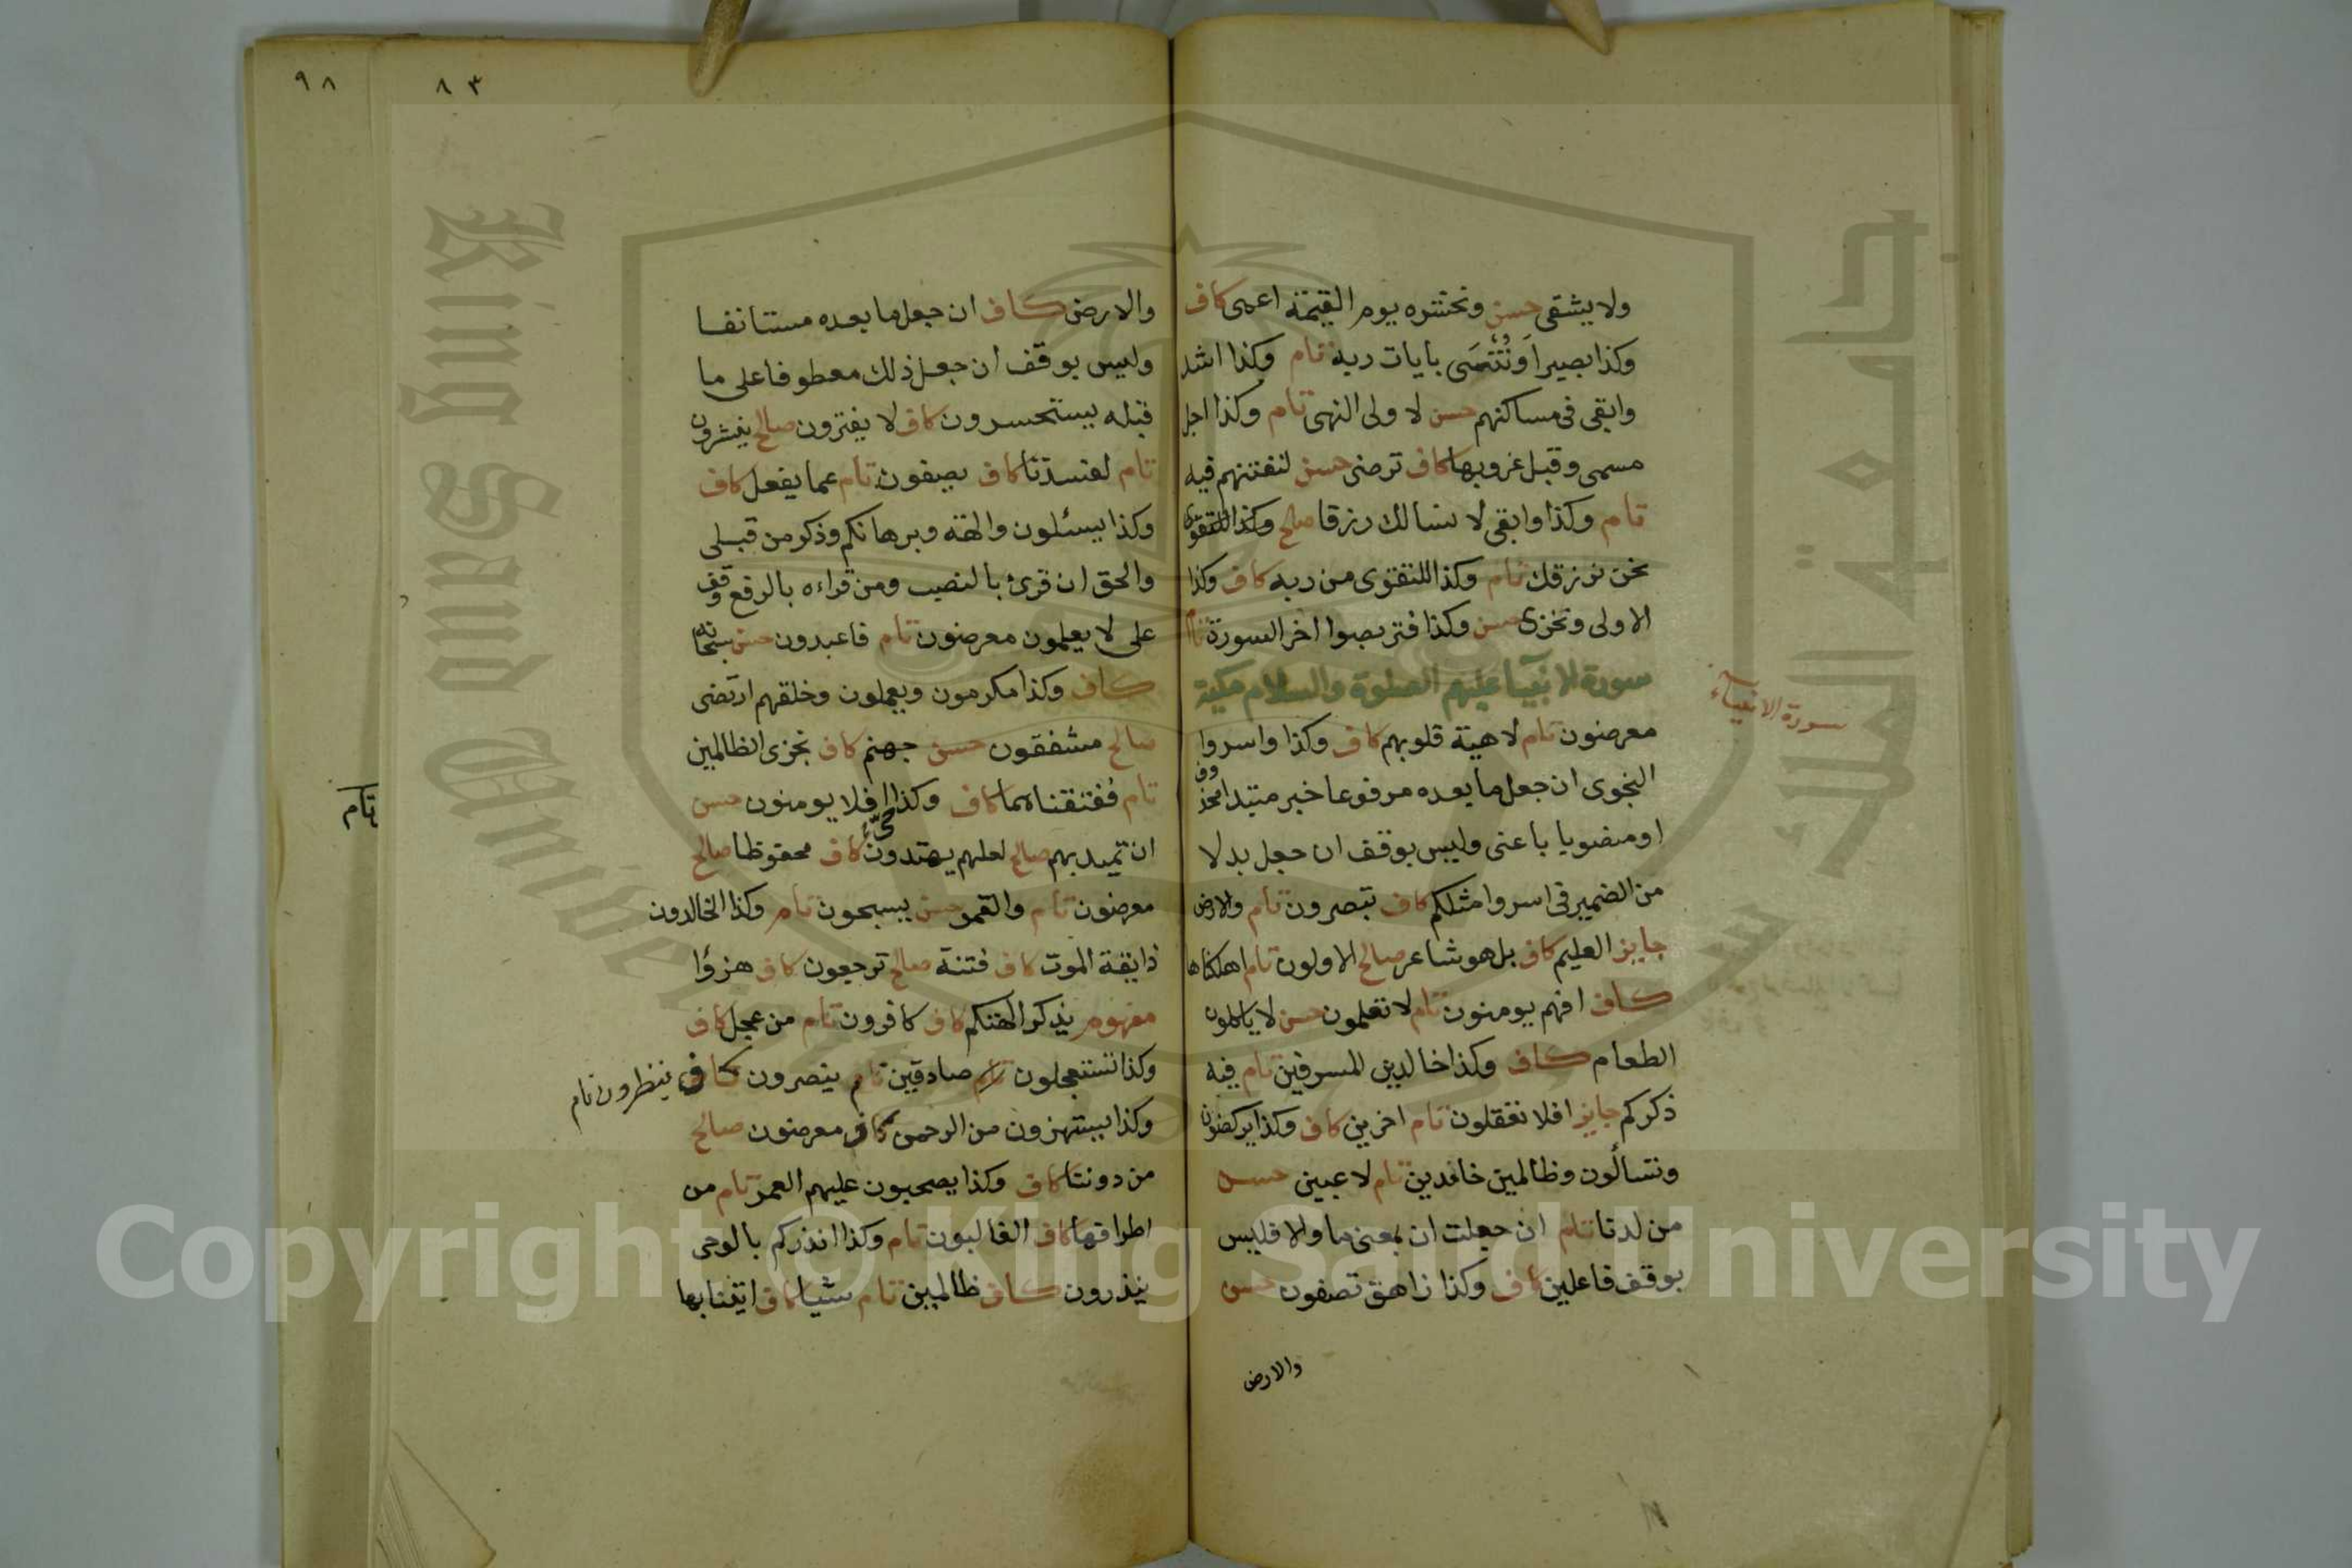 ولا يشقى حسن ونحشره يوم القيمة اعمى كاف
وكذا بصيرا وتنسى بايات ربه تام وكذا اشد
وابقى فى مساكنهم حسن لاولى النهى تام وكذا اجل
مسمى وقبل غروبها كاف ترضى حسن لنفتنهم فيه
تام وكذا وابقى لا نسالك رزقا صالح
نحن نرزقك تام وكذا للتقوى من ربه كاف وكذا
الاولى ونخزى حسن وكذا فتربصوا اخر السورة تام
سورة الانبيآء عليهم الصلوة والسلام مكية
سورة الانبياء
معرضون تام لاهية قلوبهم كاف وكذا واسروا
النجوى ان جعل ما بعده مرفوعا خبر مبتدا محذوف
او منصوبا باعنى وليس بوقف ان جعل بدلا
من الضمير فى اسروا مثلكم كاف تبصرون تام والارض
جايز العليم كاف بل هو شاعر صالح الاولون تام اهلكناها
كاف افهم يومنون تام لا تعلمون حسن لا ياكلون
الطعام كاف وكذا خالدين المسرفين تام فيه
ذكركم جايز افلا تعقلون تام اخرين كاف وكذا يركضون
وتسألون وظالمين خامدين تام لاعبين حسن
من لدنا تام ان جعلت ان بمعنى ما والا فليس
بوقف فاعلين كاف وكذا زاهق تصفون حسن
والارض
٨٣
٩٨
والارض كاف ان جعل ما بعده مستانفا
وليس بوقف ان جعل ذلك معطوفا على ما
قبله يستحسرون كاف لا يفترون صالح ينشرون
تام لفسدتا كاف يصفون تام عما يفعل كاف
وكذا يسئلون والهة وبرهانكم وذكر من قبلى
والحق ان قرئ بالنصب ومن قراءه بالرفع وقف
على لا يعلمون معرضون تام فاعبدون حسن سبحانه
كاف وكذا مكرمون ويعملون وخلقهم ارتضى
صالح مشفقون حسن جهنم كاف نجزى الظالمين
تام ففتقناهما كاف وكذا حىّ افلا يومنون حسن
ان تميد بهم صالح لعلهم يهتدون كاف محفوظا صالح
معرضون تام والقمر حسن يسبحون تام وكذا الخالدون
ذايقة الموت كاف فتنة صالح ترجعون كاف هزؤا
مفهوم يذكر الهتكم كاف كافرون تام من عجل كاف
وكذا تستعجلون تام صادقين تام ينصرون كاف ينظرون تام
وكذا يستهزون من الرحمن كاف معرضون صالح
من دوننا كاف وكذا يصحبون عليهم العمر تام من
اطرافها كاف الغالبون تام وكذا انذركم بالوحى
ينذرون كاف ظالمين تام شيا كاف اتينا بها
تام
Copyright © King Saud University
King Saud University
جامعة الملك سعود